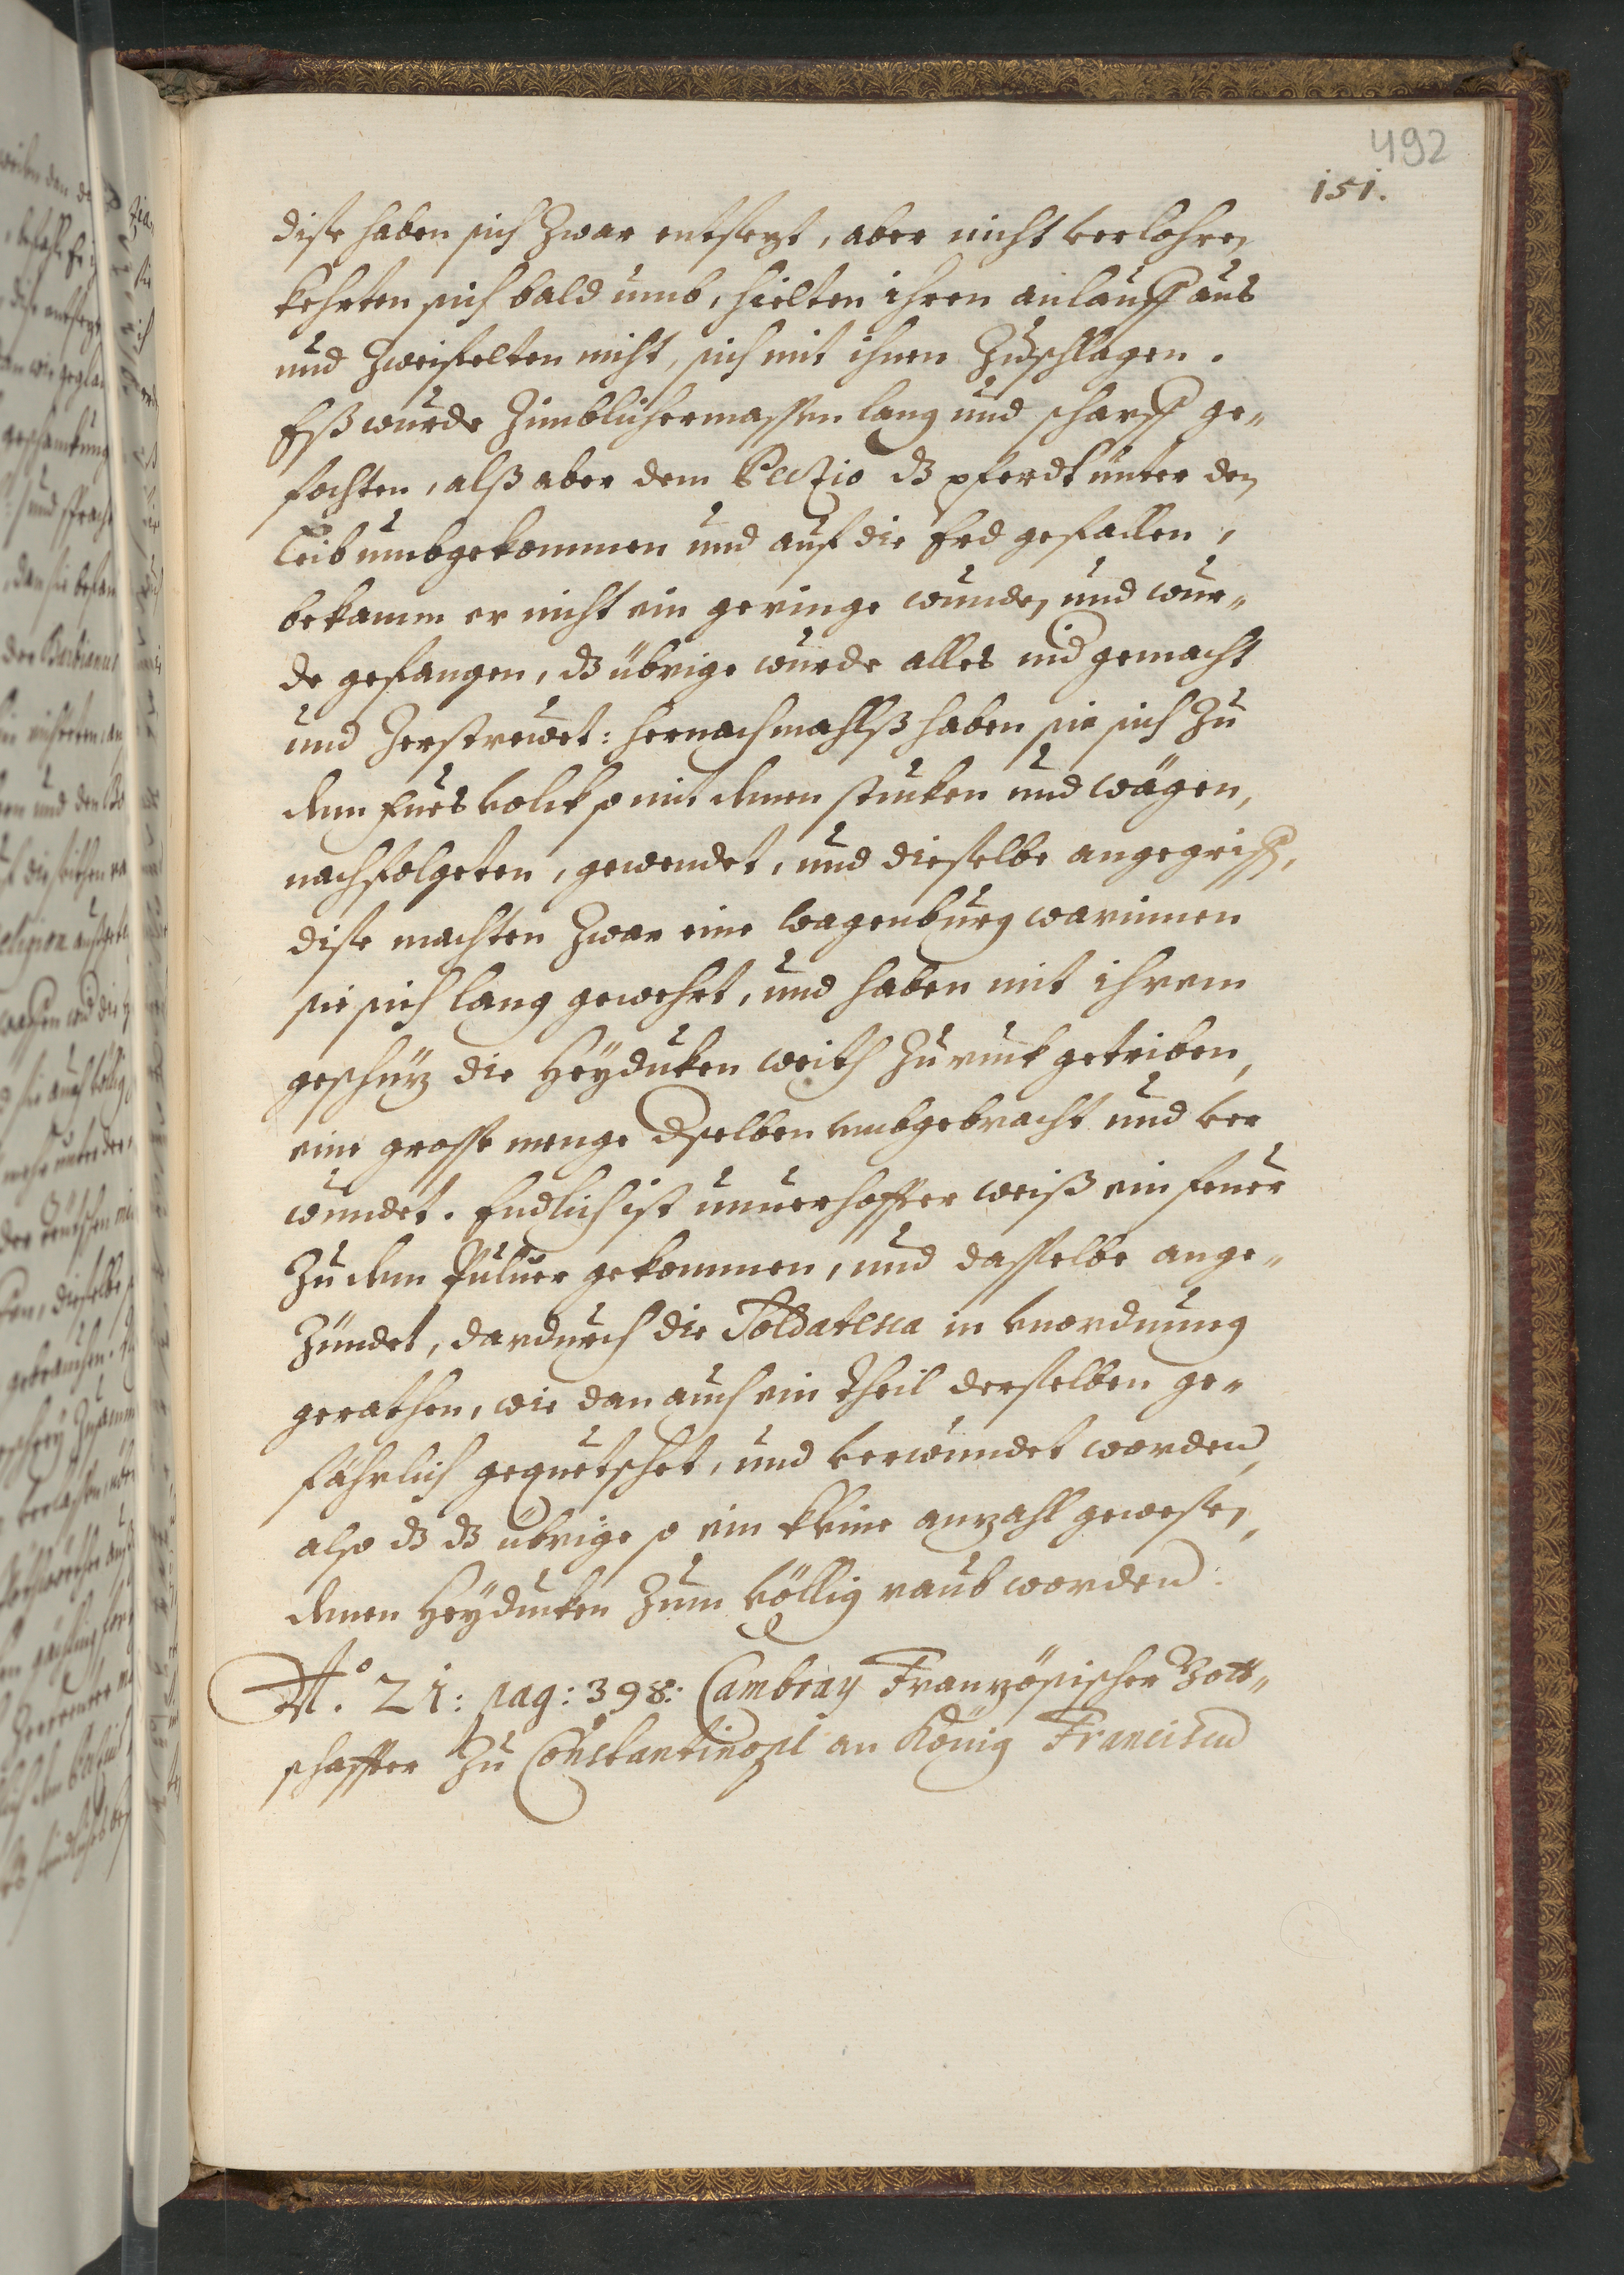 492
151.
dise haben sich zwar entsezt, aber nicht verlohren
kehrten sich bald umb, hielten ihren anlauff aus
und zweifelten nicht, sich mit ihnen zuschlagen.
Eß wurde zimblichermassen lang und scharff ge-
fochten, alß aber dem Peczio dz pferdt unter den
Leib umbgekommen und auf die Erd gefallen,
bekamm er nicht ein geringe wunden und wur-
de gefangen, dz übrige wurde alles nid gemacht
und zerstrewet: hernachmahlß haben sie sich zu
dem fues volck so mit denen stucken und wägen,
nachfolgeten, gewendet, und dieselbe angegriffen,
dise machten zwar eine wagenburg warinnen
sie sich lang gewehrt, und haben mit ihrem
geschüz die Heyducken weith zuruck getriben,
eine grosse menge dselben umbgebracht und ver
wundet. Endlich ist unuerhoffter weiß ein feuer
zu dem Puluer gekommen, und dasselbe ange-
zündet, dardurch die Soldatesca in unordnung
gerathen, wie dan auch ein theil derselben ge-
fährlich gequetschet, und verwundet worden,
also dz dz übrige so ein kleine anzahl gewesen,
denen Heyducken zum völlig raub worden.
No. 21: pag: 398: Cambray Französischer Bott-
schaffter zu Constantinopl an König Franciscum